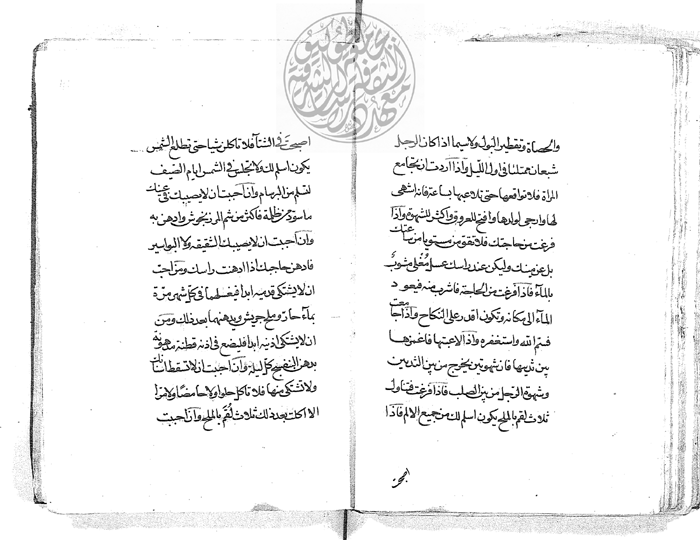 والحصاة وتقطير البول ولا سيما اذا كان الرجل
شبعان ممتلئا في اول الليل واذا اردت ان تجامع
المراة فلا تواقعها حتى تلاعبها ساعة فانه اشهى
لها وارجى لولدها وافتح للعروق واكثر للشهوة واذا
فرغت من حاجتك فلا تقومن مستويا من ساعتك
بل عن يمينك وليكن عند راسك عسل مغلى مشوب
بالماء فاذا فرغت من الحاجة فاشرب منه فيعود
الماء الى مكانه وتكون اقدر على النكاح واذا جامعت
فسم الله واستغفره واذا لاعبتها فاغمزها
بين ثدييها فان شهوتهن يخرج من بين الثديين
وشهوة الرجل من بين الصلب فاذا فرغت فتناول
ثلاث لقم بالملح يكون اسلم لك من جميع الالم فاذا
اصبحت في الشتاء فلا تاكلن شيا حتى تطلع الشمس
يكون اسلم لك ولا تجلس في الشمس ايام الصيف
لتسلم من البرسام وان احببت ان لا يصيبك في عينك
ما سوء من ظلمة فاكثر من شم المرزنجوش وادهن به
وان احببت ان لا يصيبك الشقيقة ولا البواسير
فادهن حاجبك اذا ادهنت راسك ومن احب
ان لا يشتكي قدميه ابدا فيغسلهما في كل شهر مرة
بماء حار وملح جريش ويدهنهما بعد ذلك ومن
ان لا يشتكي اذنيه ابدا فليضع في اذنه قطنة مدهونة
بدهن البنفسج كل ليلة وان احببت ان لا تسقط اسنانك
ولا تشتكي منها فلا تاكل حلوا ولا حامضا ولا مرا
الا اكلت بعد ذلك ثلاث لقم بالملح وان احببت